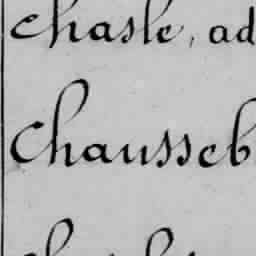 chasle, ad
chausseb